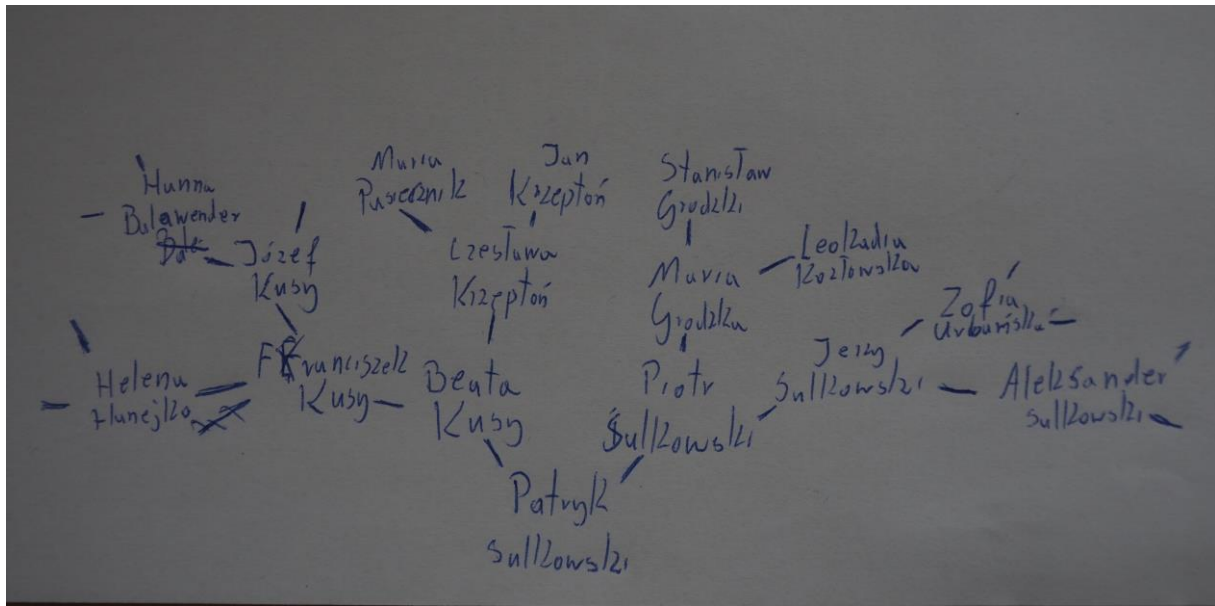 Hanna
Balawender
Maria
Pasierznik
Jan
Krzeptoń
Stanisław
Grodzki
Józef
Kusy
Czesława
Krzeptoń
Maria
Grodzka
Leokadia
Kozłowska
Zofia
Urbańska
Helena
Hunejko
Franciszek
Kusy
Beata
Kusy
Piotr
Sulkowski
Jerzy
Sulkowski
Aleksander
Sulkowski
Patryk
Sulkowski